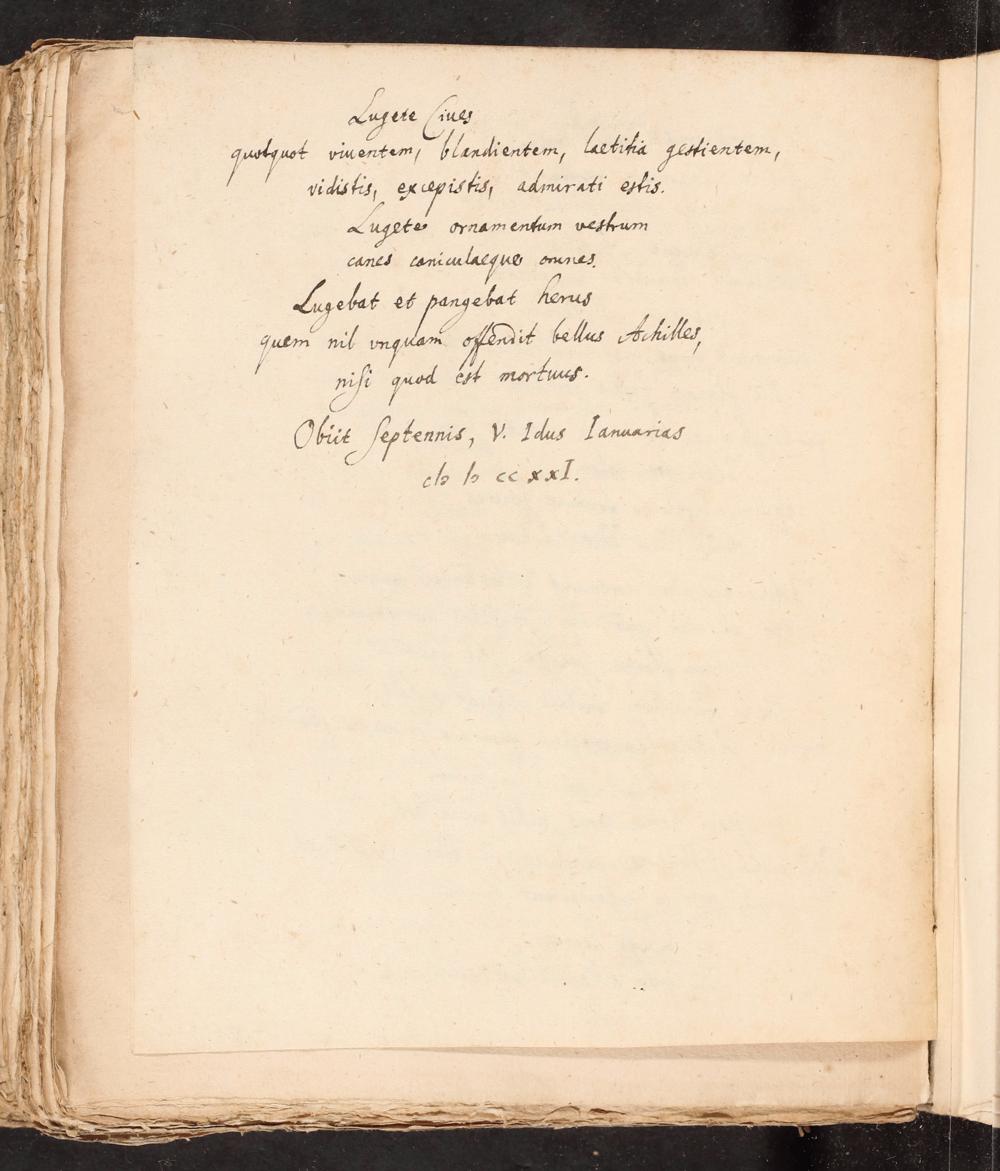 Lugete Ciues
quotquot viuentem, blandientem, laetitia gestientem,
vidistis, excepistis, admirati estis.
Lugete ornamentum vestrum
canes caniculaeque omnes.
Lugebat et pangebat herus
quem nil vnquam offendit bellus Achilles,
nisi quod est mortuus.
Obiit septennis, V. Idus Ianuarias
cIɔ Iɔ cc xxI.